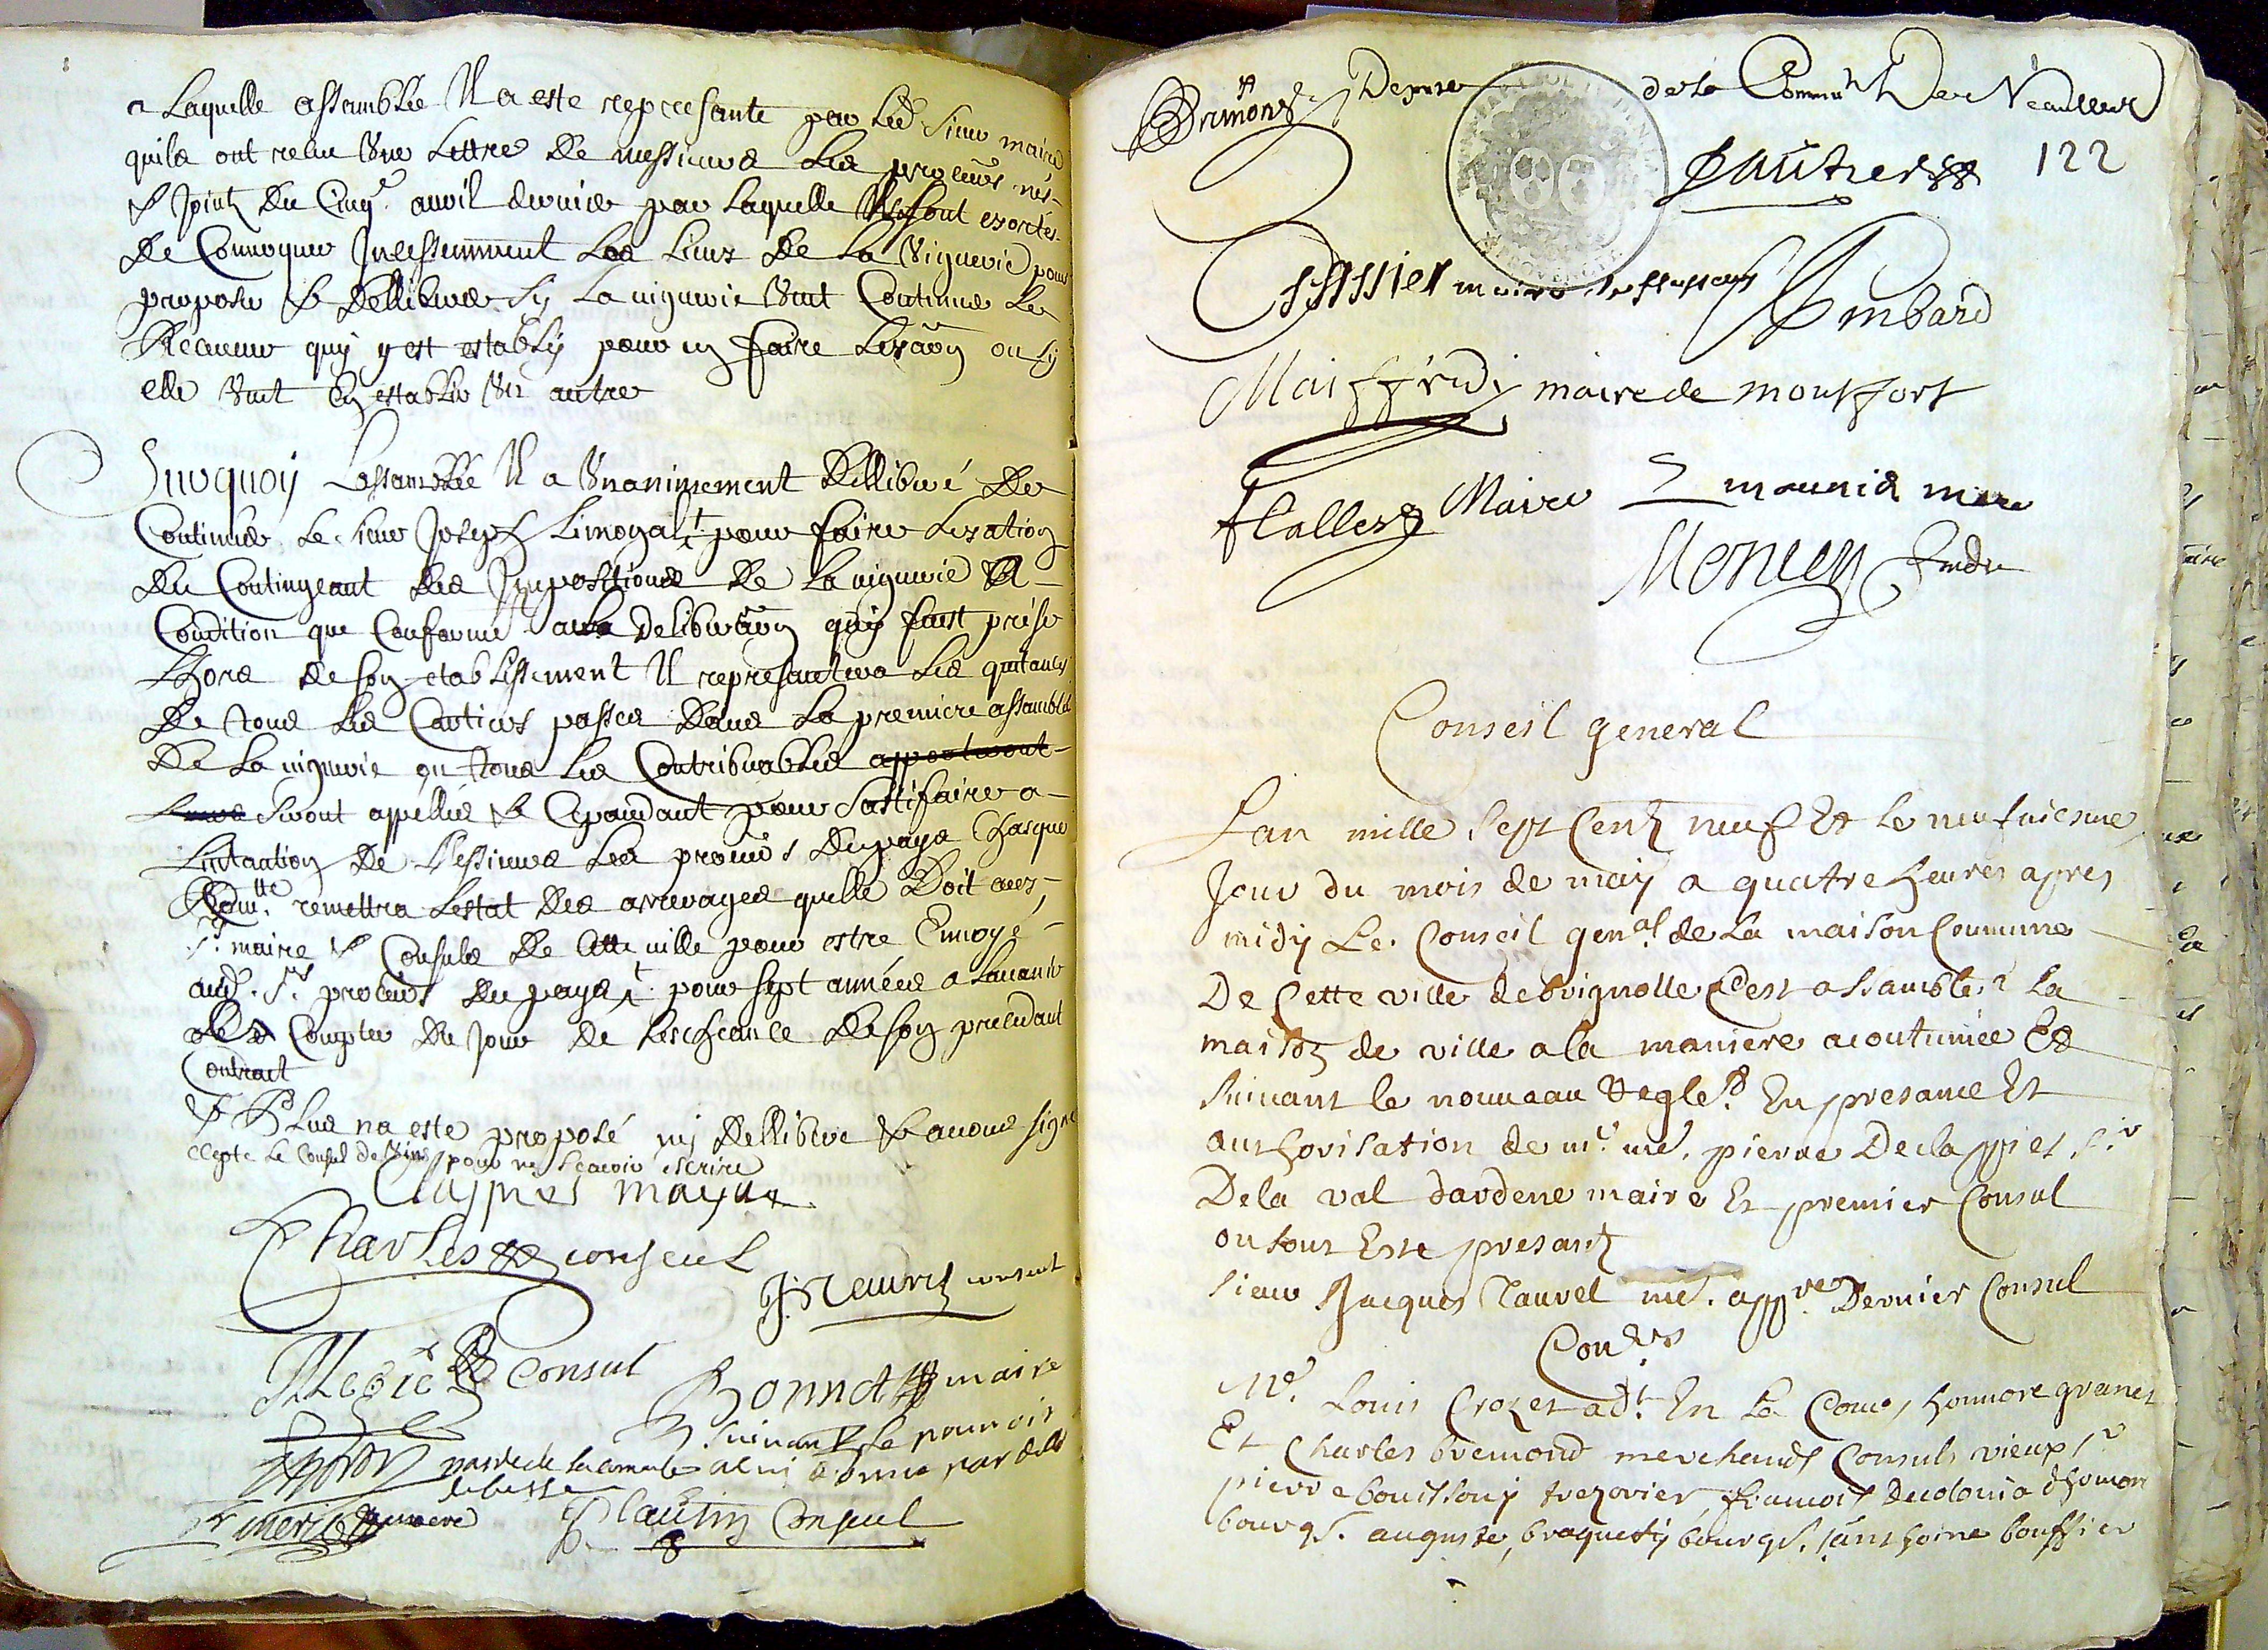 a Laquelle assamblée Il a este represanté par led sieur maire
quils ont receu Une Lettre de messieurs Les procurs nés
& Joints du Cinqe avril dernier par laquelle Ils sont exortés
De Convoquer Incessemment Les Lieux de La Viguerie pour
proposer & delliberer Sy La viguerie Veut Continuer Le
Receveur quy y est estably pour en faire Lexaon ou sy
elle Veut En establir Un autre
Surquoy Lassamblée Il a Unanimement dellibéré de
Continuer Le sieur Joseph Limogal pour faire Lexation
du Contingeant des Impositions de La viguerie A
Condition que Conforme a la deliberaon quy fust prise
Lhors de son etablissement Il represantera Les quitances
De tous Les Cartiers passés dans La premiere assamblée
De La viguerie ou tous Les Contribuables apporteront
Leurs seront appellés & Cepandant pour Sattifaire a
Lintantion de Messieurs Les procurs du pays Chasque
Comte remettra Lestat des arrerages quelle Doit aux
srs maire & Consuls de Cette ville pour estre Envoyé
auxd. srs procurs du pays pour sept années a Lavanir
a Compter du Jour de Lescheance de son precedant
Contract
& Plus na este proposé ny dellibere & avons signé
excepte le Consul de Vins pour ne scavoir escrire
Clappiers mayre
Charles consul
J. Neuvres consul
Consul
Bonnet maire
suivant le pouvoir
a luy donné par
Plautin Consul
Bremond Depute de la Commu de Neaulles
Gautier 122
Cassier maire
Imbard
Maiffredy maire de montfort
Maire
maunier
Conseil general
Lan mille Sept Cents neuf Et le neufviesme
Jour du mois de may a quatre heures apres
midy Le Conseil genal de La maison Commune
De Cette ville de brignolle Cest assamblé a La
maison de ville a la maniere acoutumée Et
suivant le nouveau regle.t En presance Et
authorisation de mr me. pierre Declappiers sr
De la val dardene maire Et premier Consul
ou sont Este presants
sieur Jacques Tauvel me. appre Dernier Consul
Conlers
Me. Louis Crozet adt. En La Cour, honnore granet
Et Charles bremond merchands Consuls vieux, sr
pierre bouissony trezorier, francois Decolonia dhomon
bourgs. auguste braquety bourgs. anthoine bouffier